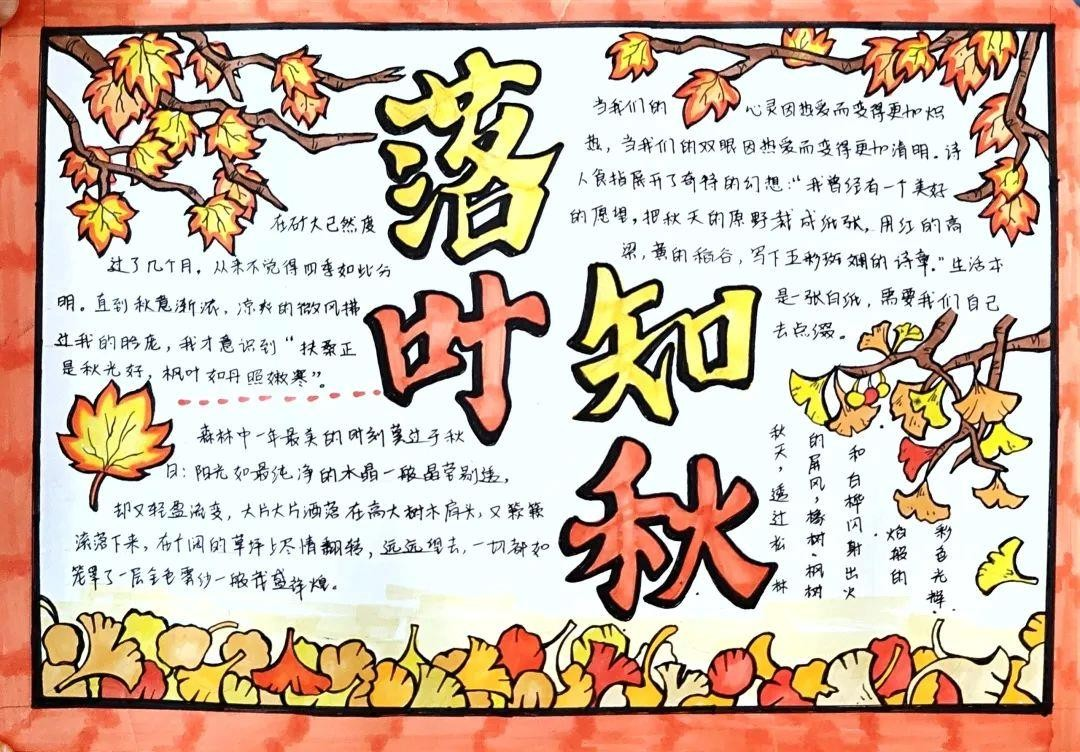 落叶知秋
在矿大已然度
过了几个月，从未不觉得四季如此分
明。直到秋意渐浓，凉爽的微风拂
过我的脸庞，我才意识到“扶桑正
是秋光好，枫叶如丹照嫩寒”。
森林中一年最美的时刻莫过于秋
日：阳光如最纯净的水晶一般晶莹剔透，
却又轻盈流变，大片大片洒落在高大树木肩头，又簌簌
滚落下来，在广阔的草坪上尽情翻转，远远望去，一切都如
笼罩了一层金色雾纱一般茂盛辉煌。
当我们的心灵因热爱而变得更加炽
热，当我们的双眼因热爱而变得更加清明。诗
人食指展开了奇特的幻想：“我曾经有一个美好
的愿望，把秋天的原野裁成纸张，用红的高
粱，黄的稻谷，写下五彩斑斓的诗章。”生活本
是一张白纸，需要我们自己
去点缀。
秋天，透过松林
的屏风，橡树、枫树
和白桦闪射出火
焰般的
彩色光辉。